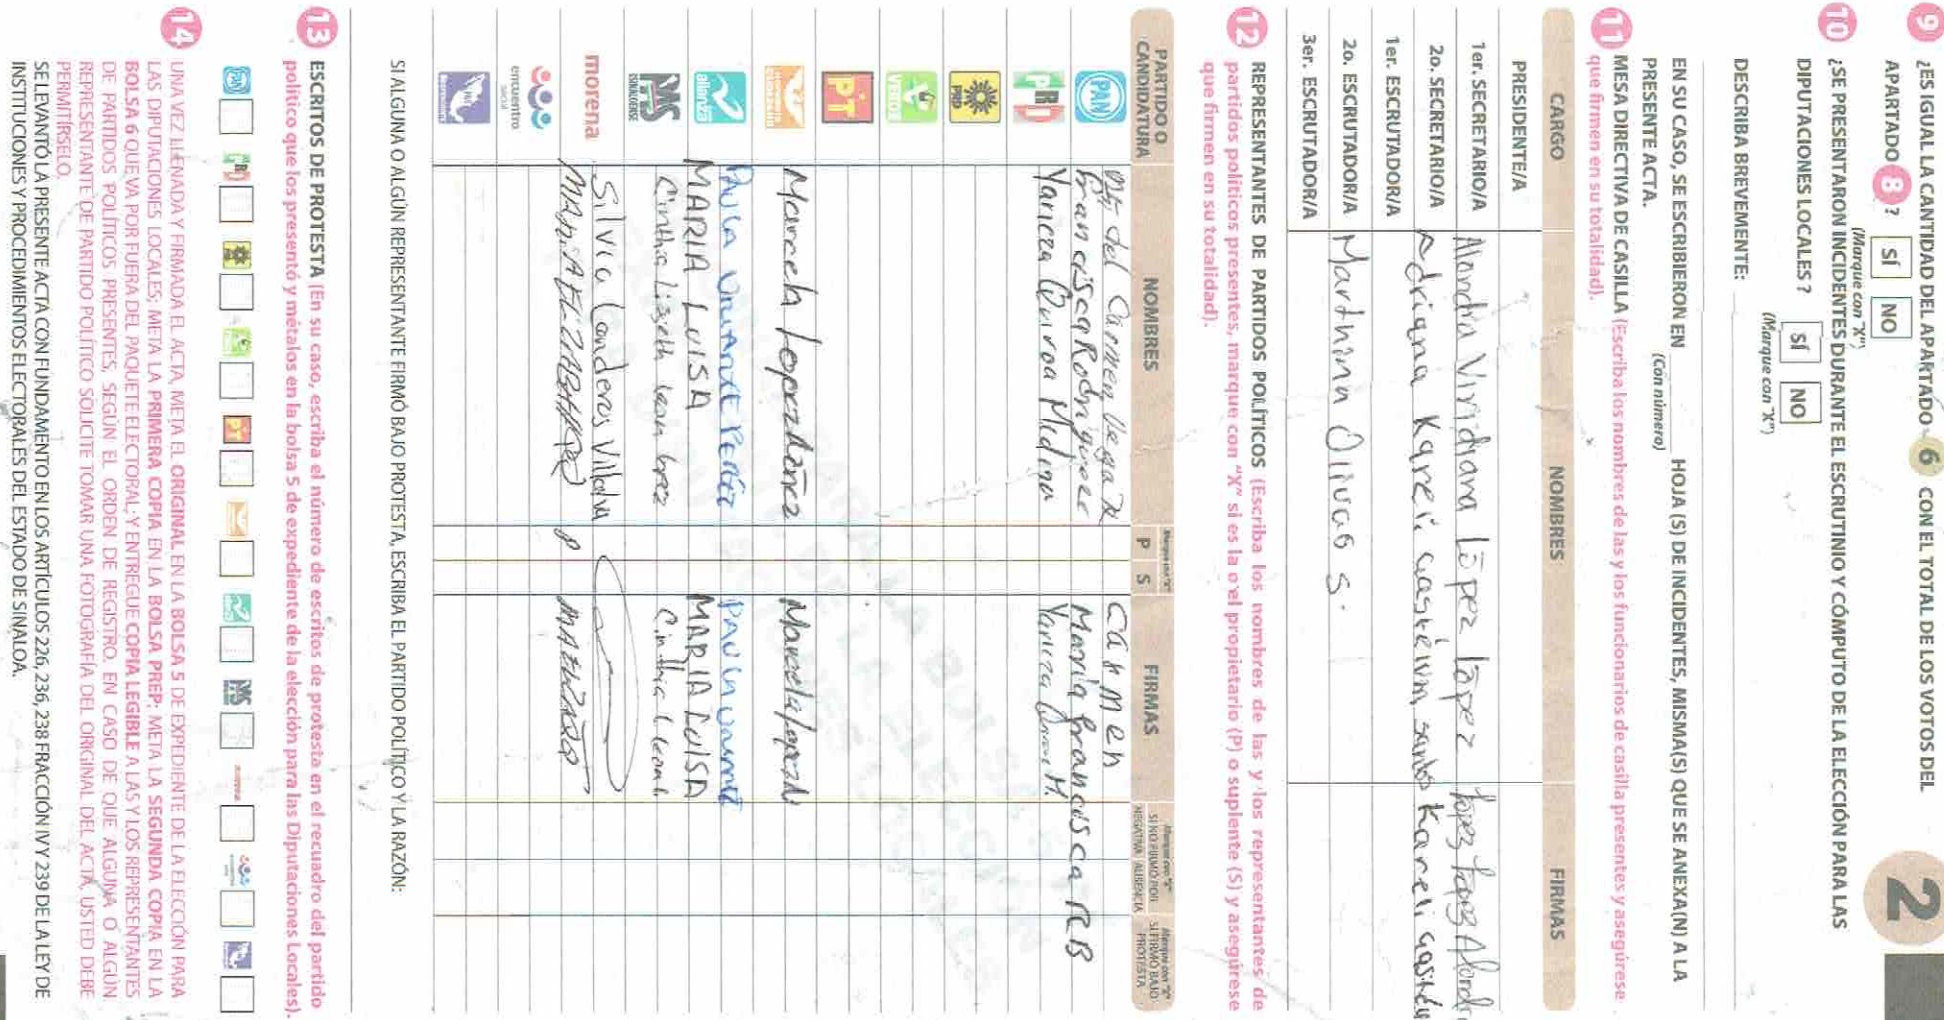 9 ¿ES IGUAL LA CANTIDAD DEL APARTADO 6 CON EL TOTAL DE LOS VOTOS DEL
APARTADO 8 ? SÍ NO
(Marque con "X")
10 ¿SE PRESENTARON INCIDENTES DURANTE EL ESCRUTINIO Y CÓMPUTO DE LA ELECCIÓN PARA LAS
DIPUTACIONES LOCALES? SÍ NO
(Marque con "X")
2
DESCRIBA BREVEMENTE:
EN SU CASO, SE ESCRIBIERON EN HOJA (S) DE INCIDENTES, MISMA(S) QUE SE ANEXA(N) A LA
(Con número)
PRESENTE ACTA.
11 MESA DIRECTIVA DE CASILLA (Escriba los nombres de las y los funcionarios de casilla presentes y asegúrese
que firmen en su totalidad).
CARGO NOMBRES FIRMAS
PRESIDENTE/A
1er. SECRETARIO/A Viridiana López López López López
2o. SECRETARIO/A Adriana Kareli Kareli
1er. ESCRUTADOR/A
2o. ESCRUTADOR/A Martnina Olivas S.
3er. ESCRUTADOR/A
12 REPRESENTANTES DE PARTIDOS POLÍTICOS (Escriba los nombres de las y los representantes de
partidos políticos presentes, marque con "X" si es la o el propietario (P) o suplente (S) y asegúrese
que firmen en su totalidad).
PARTIDO O CANDIDATURA NOMBRES Marque con "X" P S FIRMAS Marque con "X" SI NO FIRMÓ POR: NEGATIVA AUSENCIA Marque con "X" SI FIRMÓ BAJO PROTESTA
PAN del Carmen Vega Carmen
Francisca Rodriguez María francisca RB
PRI Yariza Quiroa Medina Yariza
PRD
VERDE
PT
movimiento ciudadano Marcela Lopez Marcela Lopez
alianza PAULA PEREZ PAULA
MARIA LUISA MARIA LUISA
PAS SINALOENSE Cinthia Lizeth Leon Cinthia L Leon
morena Silvia Landeros Villalva
P
encuentro social
INDEPENDIENTE
SI ALGUNA O ALGÚN REPRESENTANTE FIRMÓ BAJO PROTESTA, ESCRIBA EL PARTIDO POLÍTICO Y LA RAZÓN:
13 ESCRITOS DE PROTESTA (En su caso, escriba el número de escritos de protesta en el recuadro del partido
político que los presentó y métalos en la bolsa 5 de expediente de la elección para las Diputaciones Locales).
PAN PRI PRD VERDE PT alianza PAS morena
14 UNA VEZ LLENADA Y FIRMADA EL ACTA, META EL ORIGINAL EN LA BOLSA 5 DE EXPEDIENTE DE LA ELECCIÓN PARA
LAS DIPUTACIONES LOCALES; META LA PRIMERA COPIA EN LA BOLSA PREP; META LA SEGUNDA COPIA EN LA
BOLSA 6 QUE VA POR FUERA DEL PAQUETE ELECTORAL; Y ENTREGUE COPIA LEGIBLE A LAS Y LOS REPRESENTANTES
DE PARTIDOS POLÍTICOS PRESENTES, SEGÚN EL ORDEN DE REGISTRO. EN CASO DE QUE ALGUNA O ALGÚN
REPRESENTANTE DE PARTIDO POLÍTICO SOLICITE TOMAR UNA FOTOGRAFÍA DEL ORIGINAL DEL ACTA, USTED DEBE
PERMITÍRSELO.
SE LEVANTÓ LA PRESENTE ACTA CON FUNDAMENTO EN LOS ARTÍCULOS 226, 236, 238 FRACCIÓN IV Y 239 DE LA LEY DE
INSTITUCIONES Y PROCEDIMIENTOS ELECTORALES DEL ESTADO DE SINALOA.